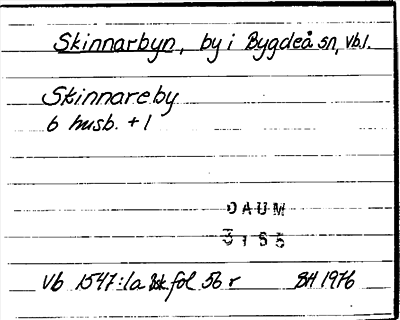 Skinnarbyn, by i Bygdeå sn, Vbl.
Skinnareby
6 husb. + 1
DAUM
3185
Vb 1547:1a Bsk fol 56 r BH 1976